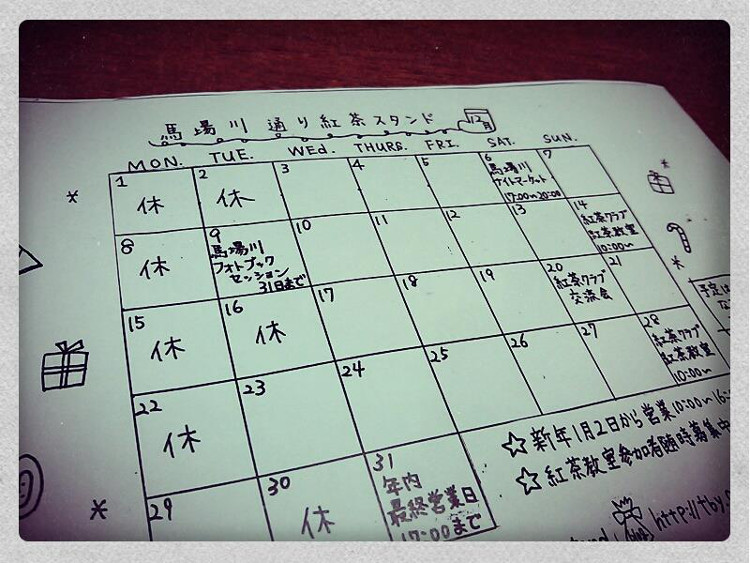 馬場川 通り紅茶スタンド 12月
MON. TUE. WEd. THURS. FRI. SAT. SUN.
1 休
2 休
3
4
5
6 馬場川
ナイトマーケット
17:00~20:00
7
8 休
9 馬場川
フォトブック
セッション
31日まで
10
11
12
13
14 紅茶クラブ
紅茶教室
10:00~
15 休
16 休
17
18
19
20 紅茶クラブ
交流会
21
22 休
23
24
25
26
27
28 紅茶クラブ
紅茶教室
10:00~
29
30 休
31 年内
最終営業日
17:00まで
予定は
☆新年1月2日から営業10:00~16:
☆紅茶教室参加者随時募集中
http://tby.